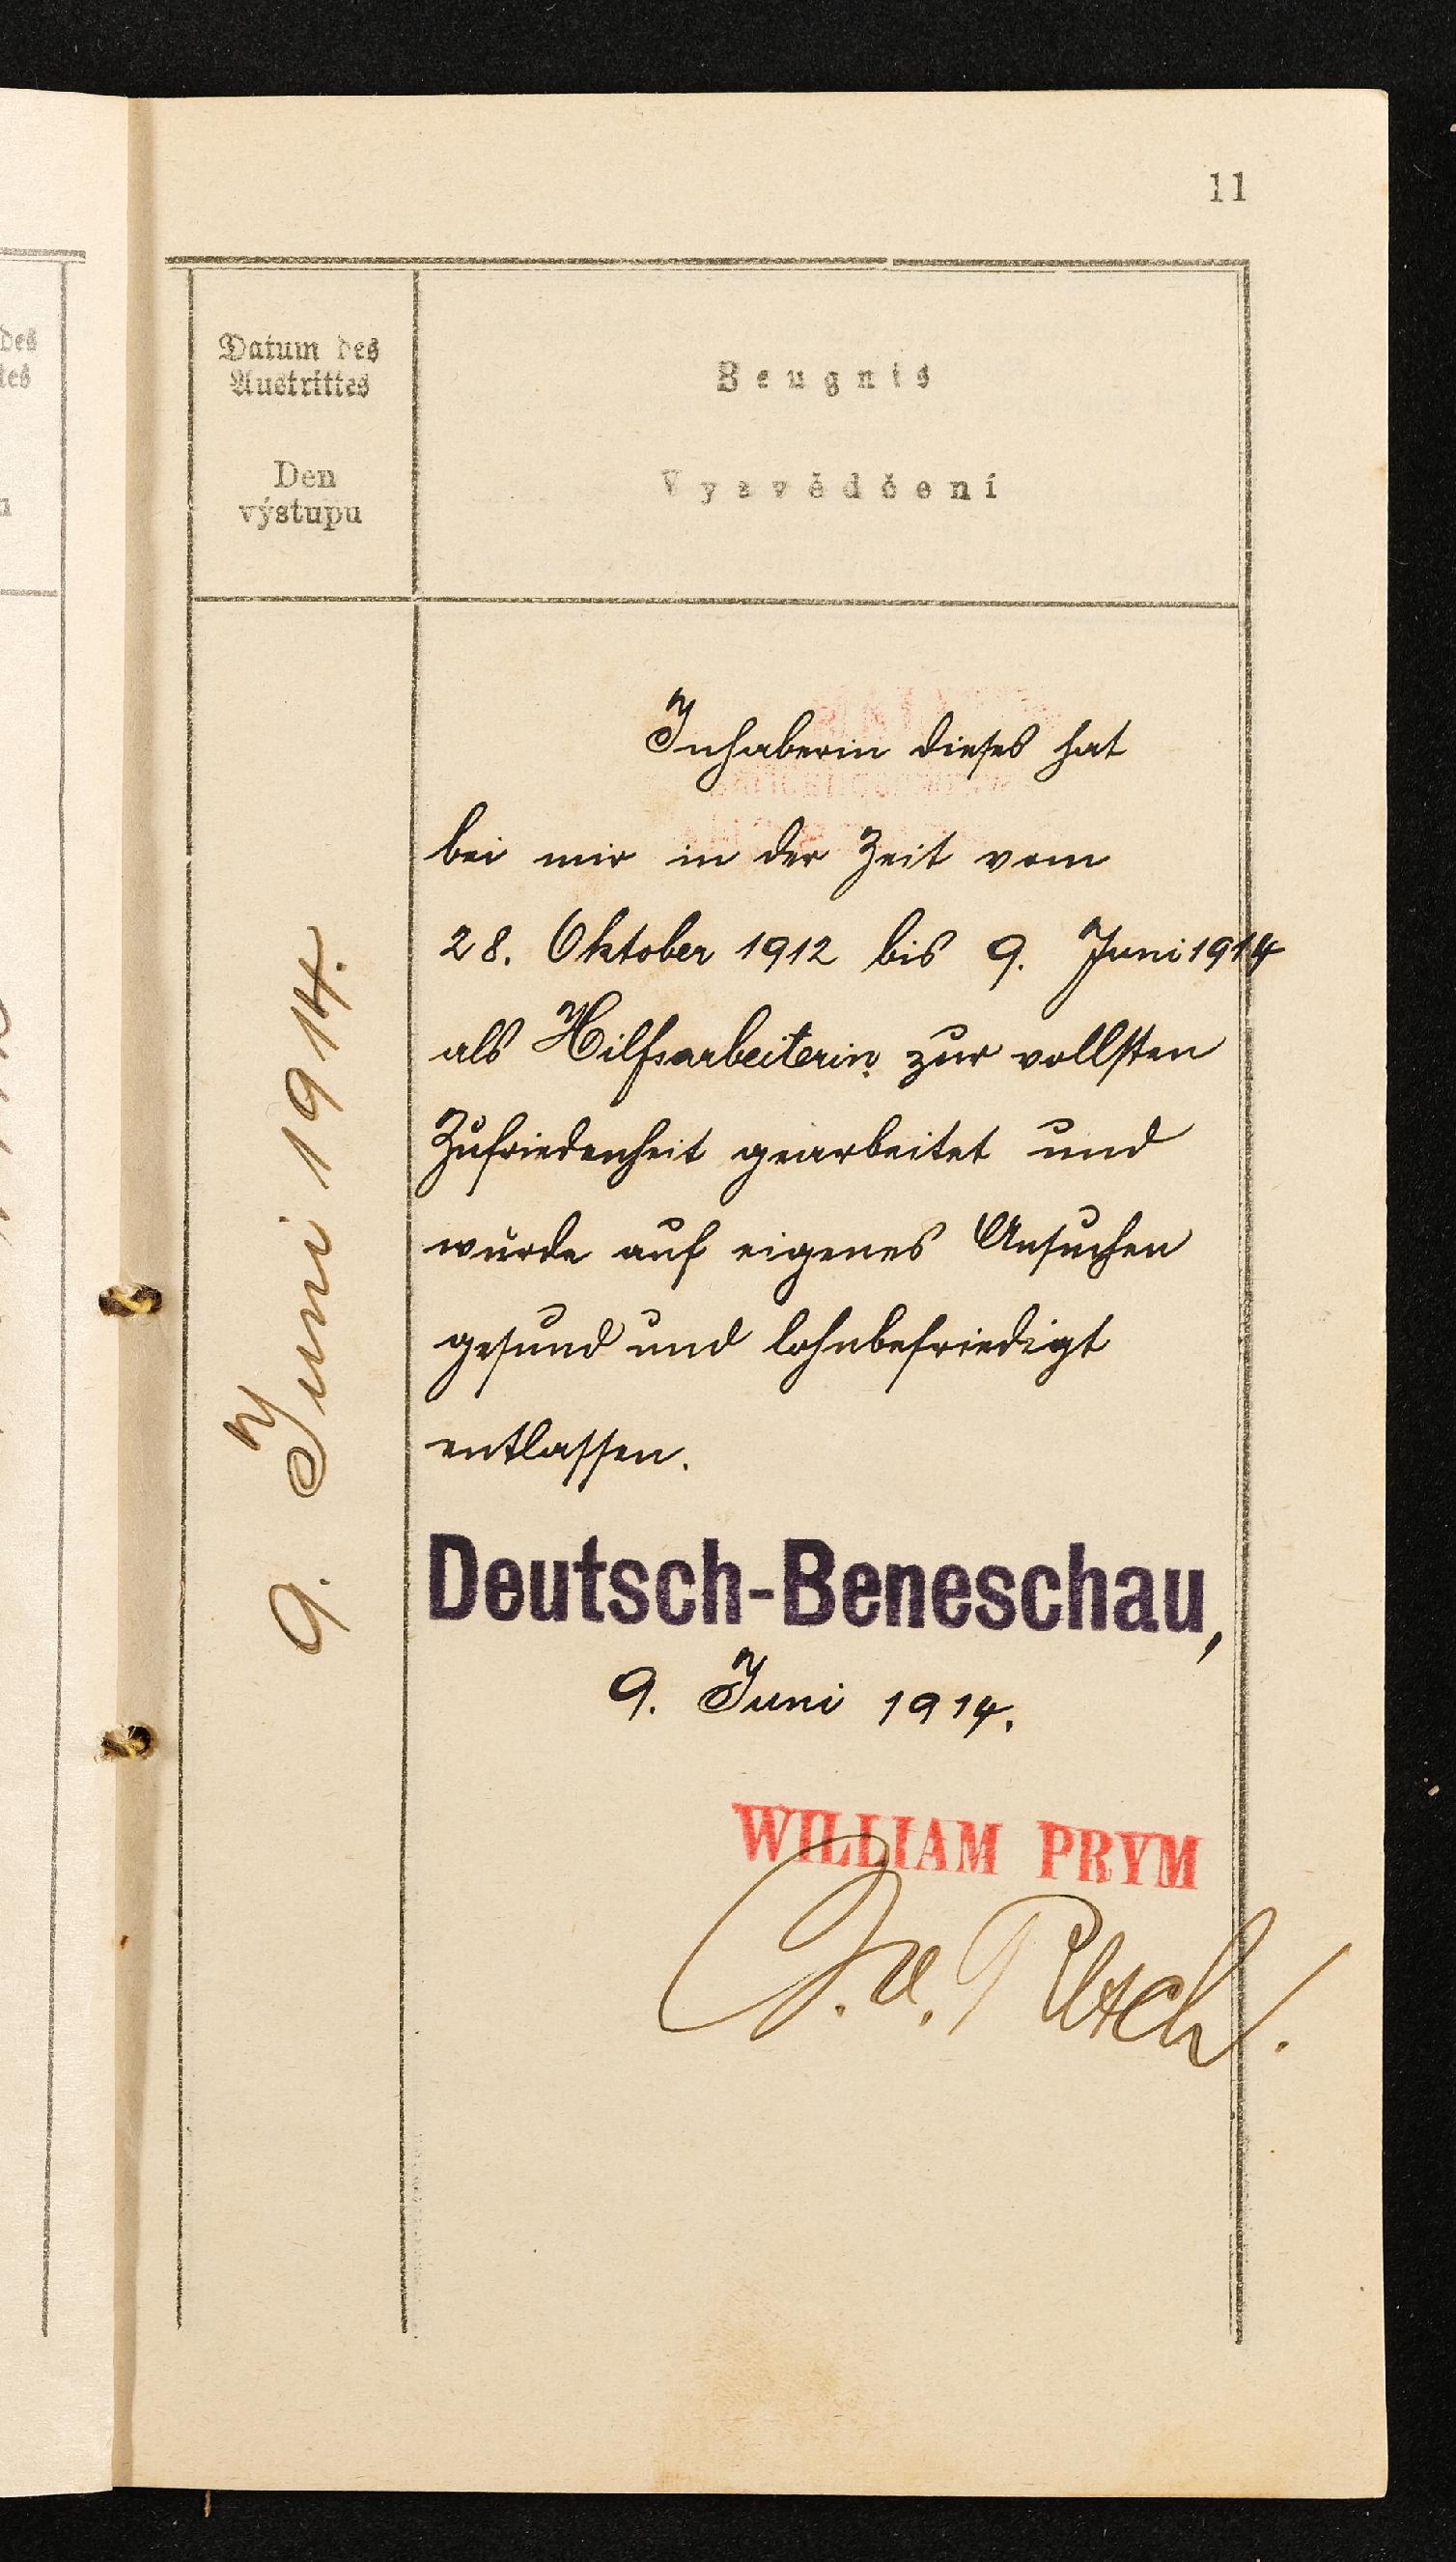 11
Datum des
Austrittes
Den
výstupu
Zeugnis
Vysvědčení
9. Juni 1914.
Inhaberin dieses hat
bei mir in der Zeit vom
28. Oktober 1912 bis 9. Juni 1914
als Hilfsarbeiterin zur vollsten
Zufriedenheit gearbeitet und
wurde auf eigenes Ansuchen
gesund und lohnbefriedigt
entlassen.
Deutsch-Beneschau,
9. Juni 1914.
WILLIAM PRYM